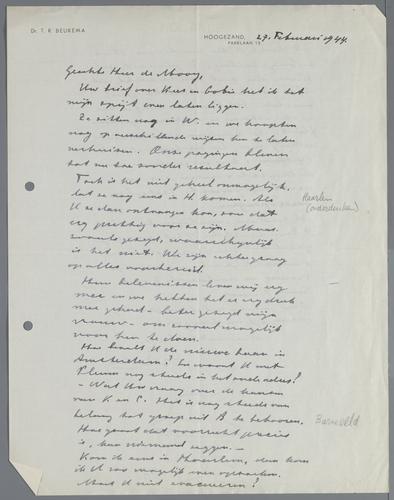 Dr. T. R. BEUKEMA
HOOGEZAND, 27 Februari 1944.
PARKLAAN 15
Geachte Heer de Mooy,
Uw brief over Kees en Cobie heb ik tot
mijn spijt even laten liggen.
Ze zitten nog in W. en we hoopten
nog op verschillende wijzen hen te laten
verhuizen. Onze pogingen bleven
tot nu toe zonder resultaat.
Toch is het niet geheel onmogelijk,
dat ze nog eens in H. komen. Als
U ze dan ontvangen kon, zou dat
erg prettig voor ze zijn. Maar
zooals gezegd, waarschijnlijk
is het niet. We zijn echter graag
op alles voorbereid.
Haarlem
(onderduiken)
Hun belevenissen leven wij erg
mee en we hebben het er erg druk
mee gehad - beter gezegd mijn
vrouw - om zooveel mogelijk
voor hen te doen.
Hoe bevalt U de nieuwe baan in
Amsterdam? En woont U met
nog steeds in het oude adres?
- Wat Uw vraag over de kansen
van K en C. Het is nog steeds van
belang tot groep uit B te behooren.
Hoe groot dat voorrecht precies
is, kan niemand zeggen. -
Barneveld
Kom ik eens in Haarlem, dan kom
ik U zoo mogelijk even opzoeken.
Moet U niet evacueeren?